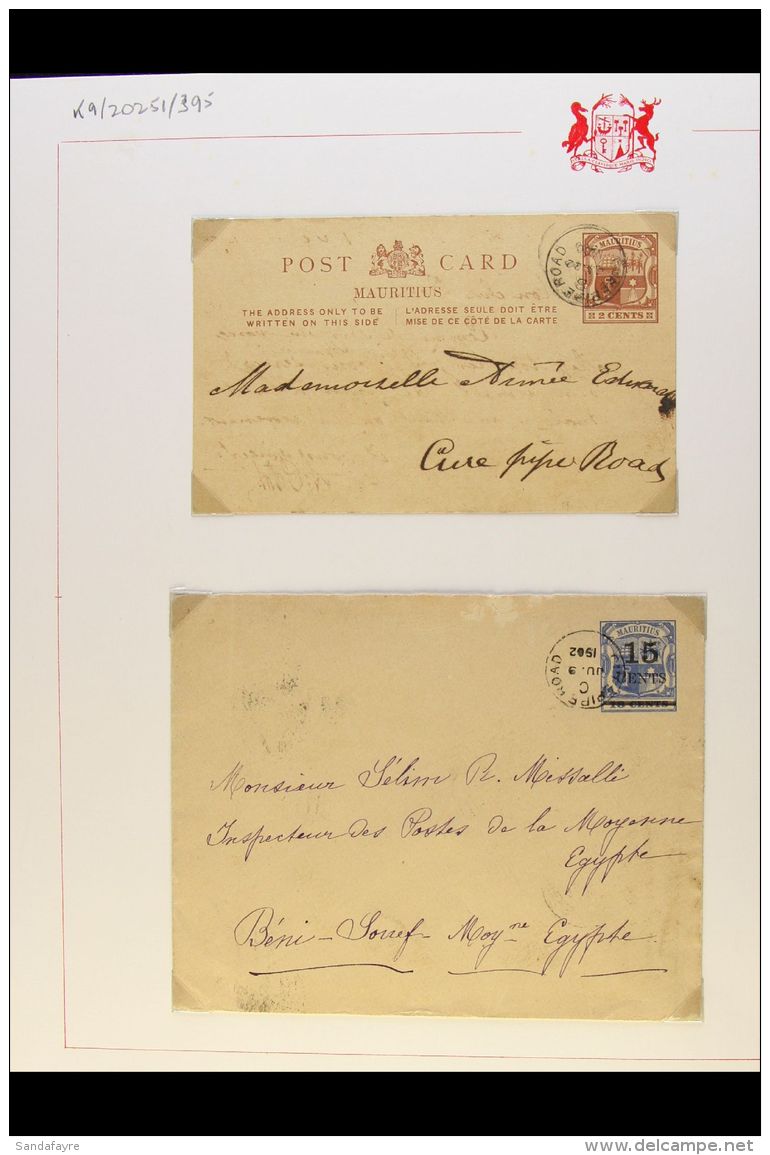 K9/20251/395
POST CARD
MAURITIUS
THE ADDRESS ONLY TO BE
WRITTEN ON THIS SIDE
L'ADRESSE SEULE DOIT ÊTRE
MISE DE CE CÔTÉ DE LA CARTE
MAURITIUS
2 CENTS
ROAD
Mademoiselle Aimée
Cure pipe Road
MAURITIUS
15
CENTS
CENTS
PIPE ROAD
C
JU 9
1902
Monsieur Sélim R. Missalli
Inspecteur des Postes de la Moyenne
Egypte
Béni-Souef- Moyne Egypte
Sandafayre
delcampe.net